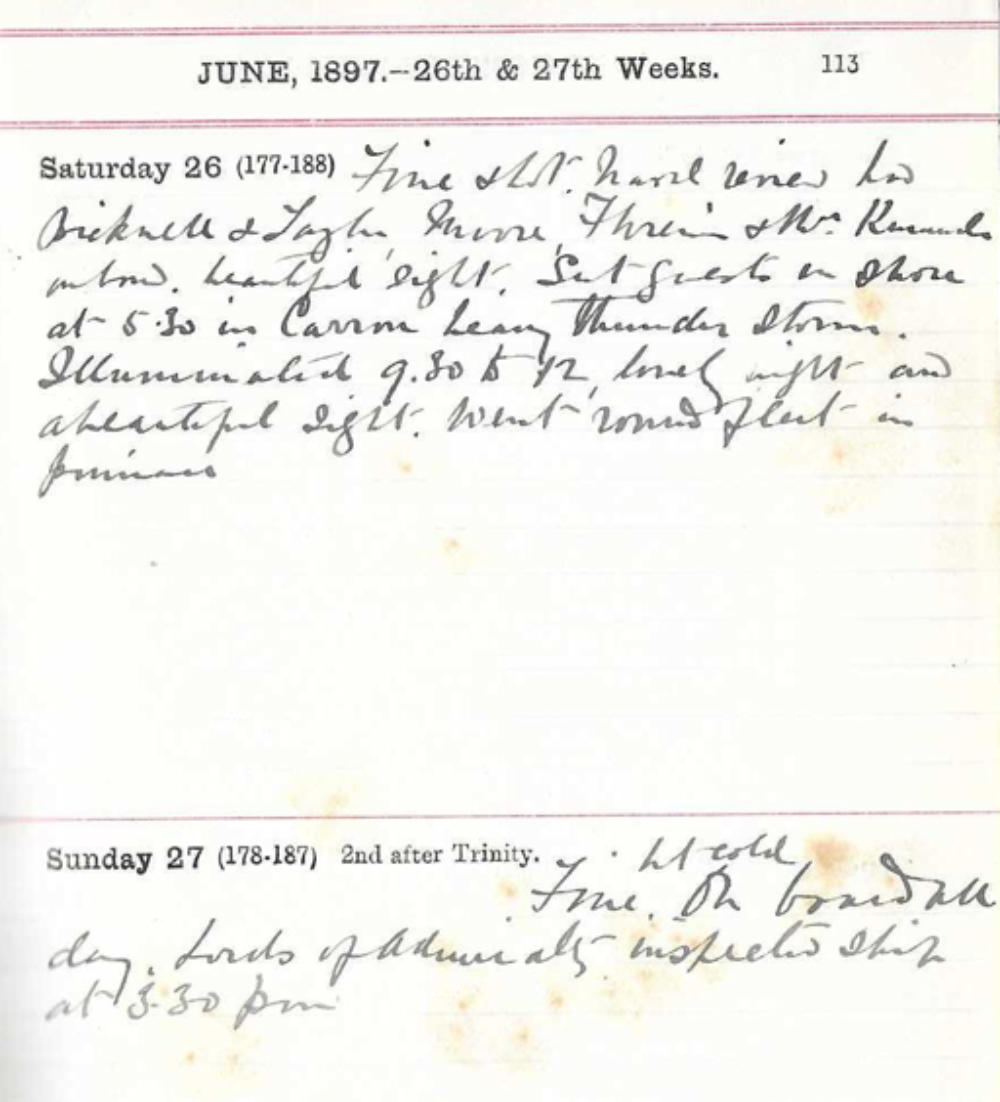 JUNE, 1897.—26th & 27th Weeks. 113
Saturday 26 (177-188) Fine & hot. Naval review had
Bicknell & Taylor, Moore, & Mrs.
on board. beautiful sight. Sent guests on shore
at 5.30 in Carron heavy thunder storm.
Illuminated 9.30 to 12, lovely night and
a beautiful sight. Went round fleet in
pinnace
Sunday 27 (178-187) 2nd after Trinity.
but cold
Fine. On board all
day. Lords of Admiralty inspected ship
at 3.30 pm